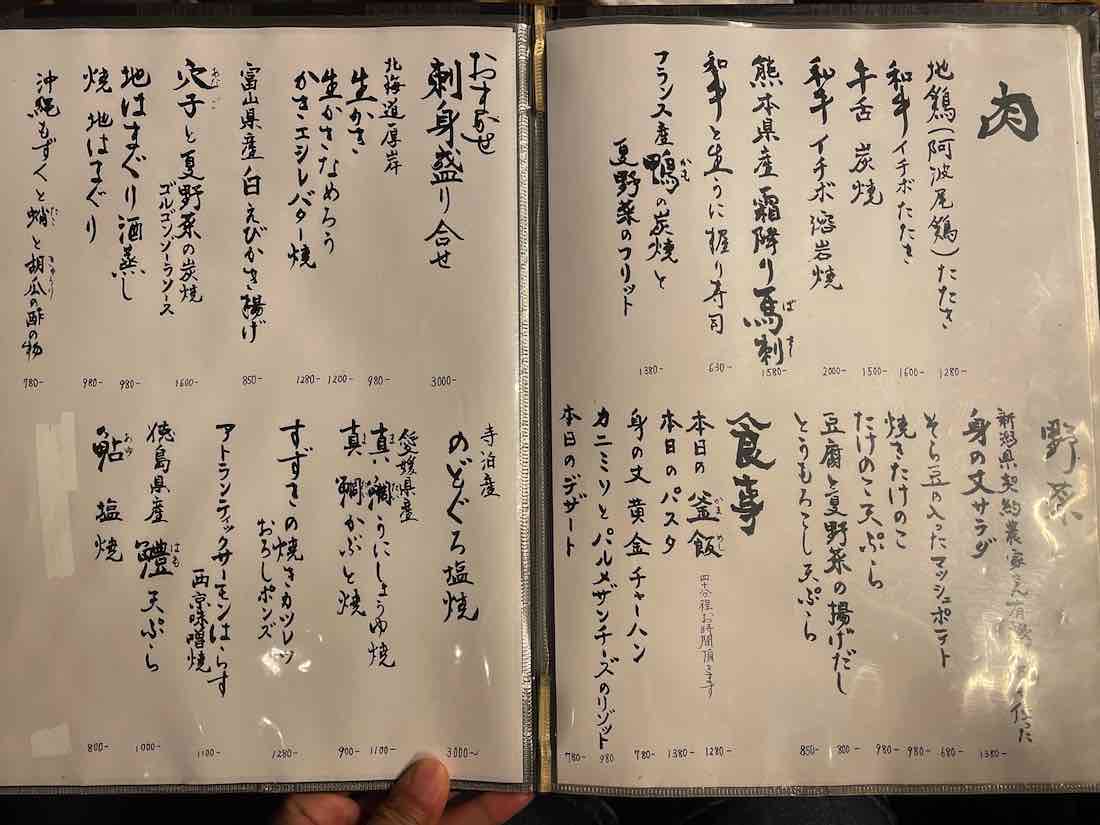 肉
地鶏(阿波尾鶏)たたき 1280-
和牛イチボたたき 1600-
牛舌 炭焼 1500-
和牛イチボ溶岩焼 2000-
熊本県産 霜降り馬刺 ばさし 1580-
和牛と生うに握り寿司 630-
フランス産鴨の炭焼と かも
夏野菜のフリット 1380-
野菜
新潟県契約農家さん
身の丈サラダ 1380-
そら豆の入ったマッシュポテト 680-
焼きたけのこ 980-
たけのこ天ぷら 980-
豆腐と夏野菜の揚げだし 800-
とうもろこし天ぷら 850-
食事
本日の釜飯 かまめし 四十分程お時間頂きます 1280-
本日のパスタ 1380-
身の丈 黄金チャーハン 780-
カニミソとパルメザンチーズのリゾット 980
本日のデザート 780-
おまかせ
刺身盛り合せ 3000-
北海道厚岸
生かき 980-
生かきなめろう 1200-
かきエシレバター焼 1280-
富山県産白えびかき揚げ 850-
穴子と夏野菜の炭焼 あなご
ゴルゴンゾーラソース 1600-
地はまぐり酒蒸し 980-
焼 地はまぐり 980-
沖縄もずくと蛸と胡瓜の酢の物 たこ きゅうり 780-
寺泊産
のどぐろ塩焼 3000-
愛媛県産
真鯛うにしょうゆ焼 1100-
真鯛かぶと焼 900-
すずきの焼きカツレツ
おろしポンズ 1280-
アトランティックサーモンはらす
西京味噌焼 1100-
徳島県産 鱧天ぷら はも 1000-
鮎 塩焼 あゆ 800-